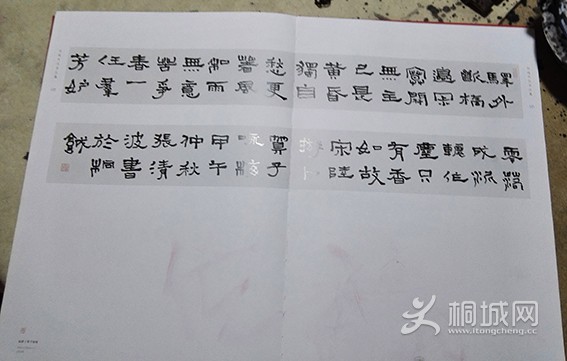 驛外
斷橋
邊寂
寞開
無主
已是
黃昏
獨自
愁更
著風
和雨
無意
苦爭
春一
任羣
芳妒
零落
成泥
碾作
塵只
有香
如故
宋陸
游卜
算子
咏梅
甲午
仲秋
張清
波書
於桐
城
桐城网
www.itongcheng.com